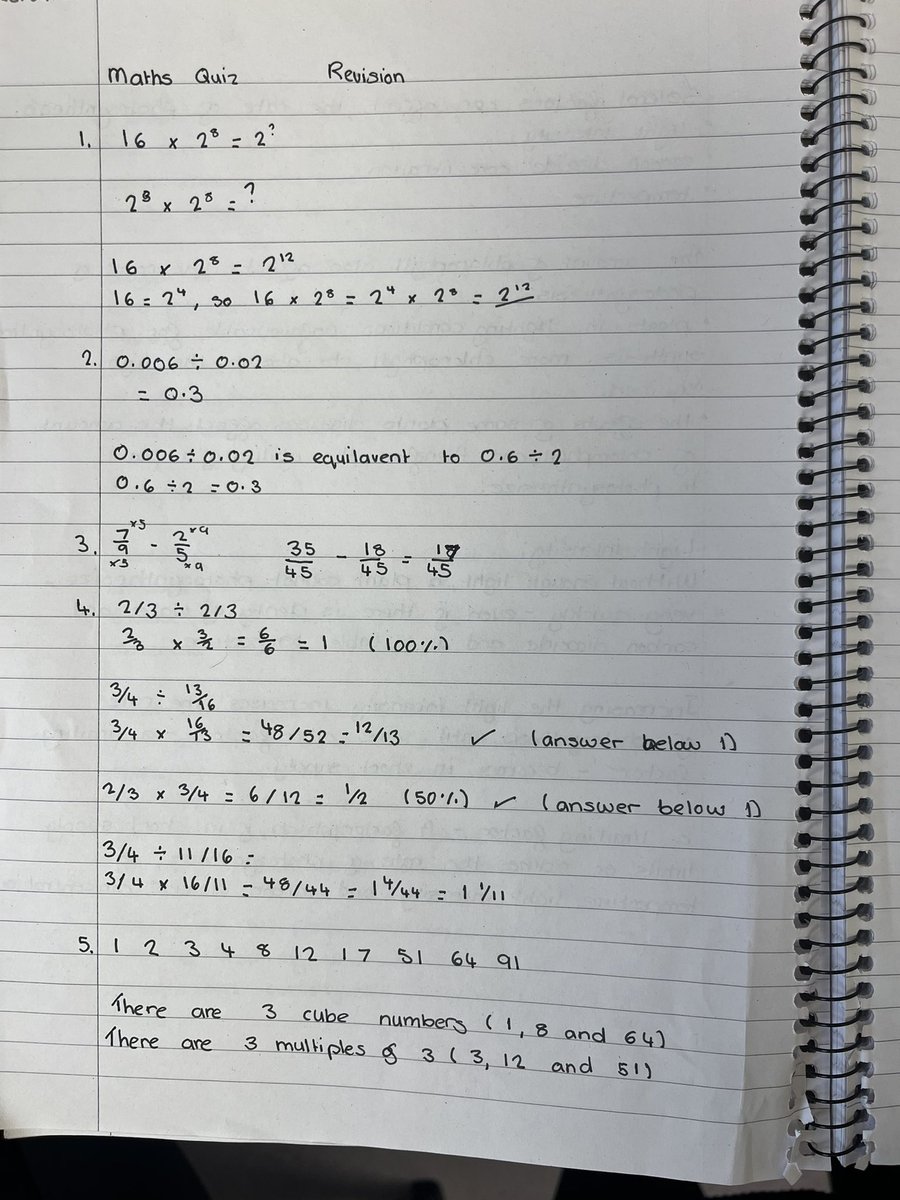 Maths Quiz Revision
1. 16 × 2⁸ = 2?
2⁸ × 2⁸ = ?
16 × 2⁸ = 2¹²
16 = 2⁴, so 16 × 2⁸ = 2⁴ × 2⁸ = 2¹²
2. 0.006 ÷ 0.02
= 0.3
0.006 ÷ 0.02 is equilavent to 0.6 ÷ 2
0.6 ÷ 2 = 0.3
3. 7/9 ×5 ×5 - 2/5 ×9 ×9 35/45 - 18/45 = 17/45
4. 2/3 ÷ 2/3
2/3 × 3/2 = 6/6 = 1 (100%)
3/4 ÷ 13/16
3/4 × 16/13 = 48/52 = 12/13 ✓ (answer below 1)
2/3 × 3/4 = 6/12 = 1/2 (50%) ✓ (answer below 1)
3/4 ÷ 11/16 =
3/4 × 16/11 = 48/44 = 1 4/44 = 1 1/11
5. 1 2 3 4 8 12 17 51 64 91
There are 3 cube numbers (1, 8 and 64)
There are 3 multiples of 3 (3, 12 and 51)